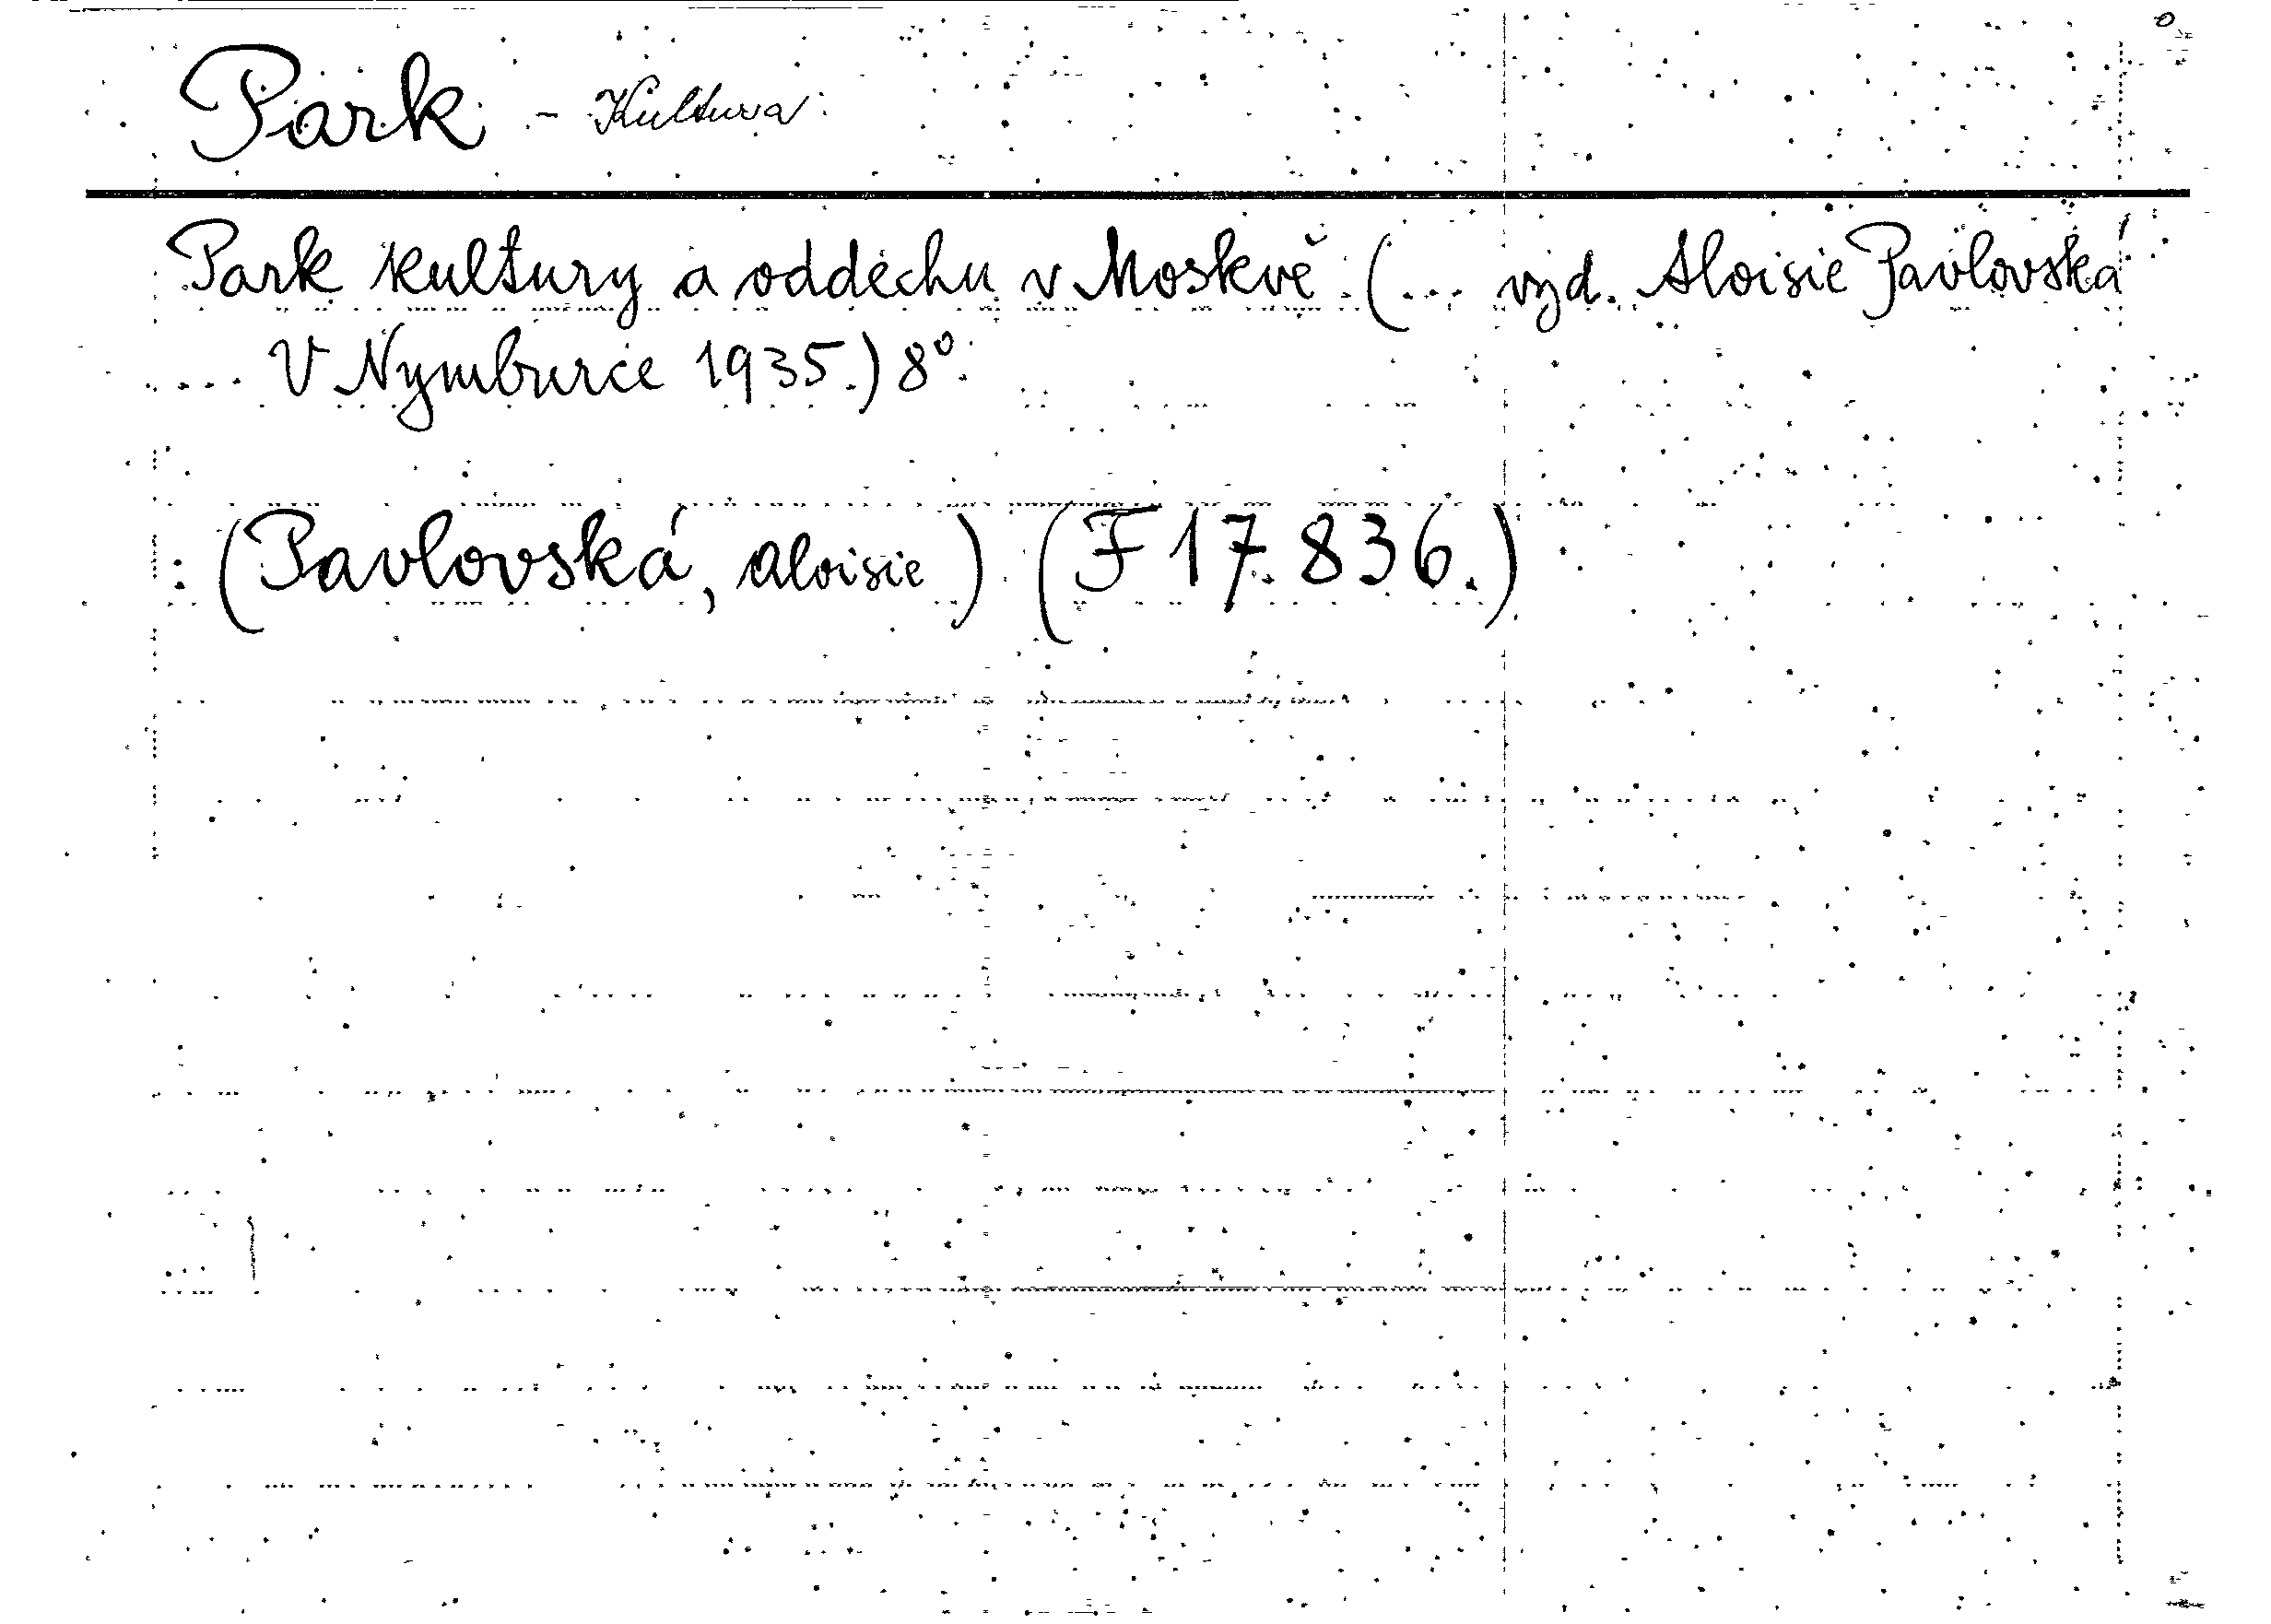 Park - Kultura
Park kultury a oddechu v Moskvě (... vyd. Aloisie Pavlovská
.... V Nymburce 1935.) 8°.
(Pavlovská, Aloisie) (F 17.836.)